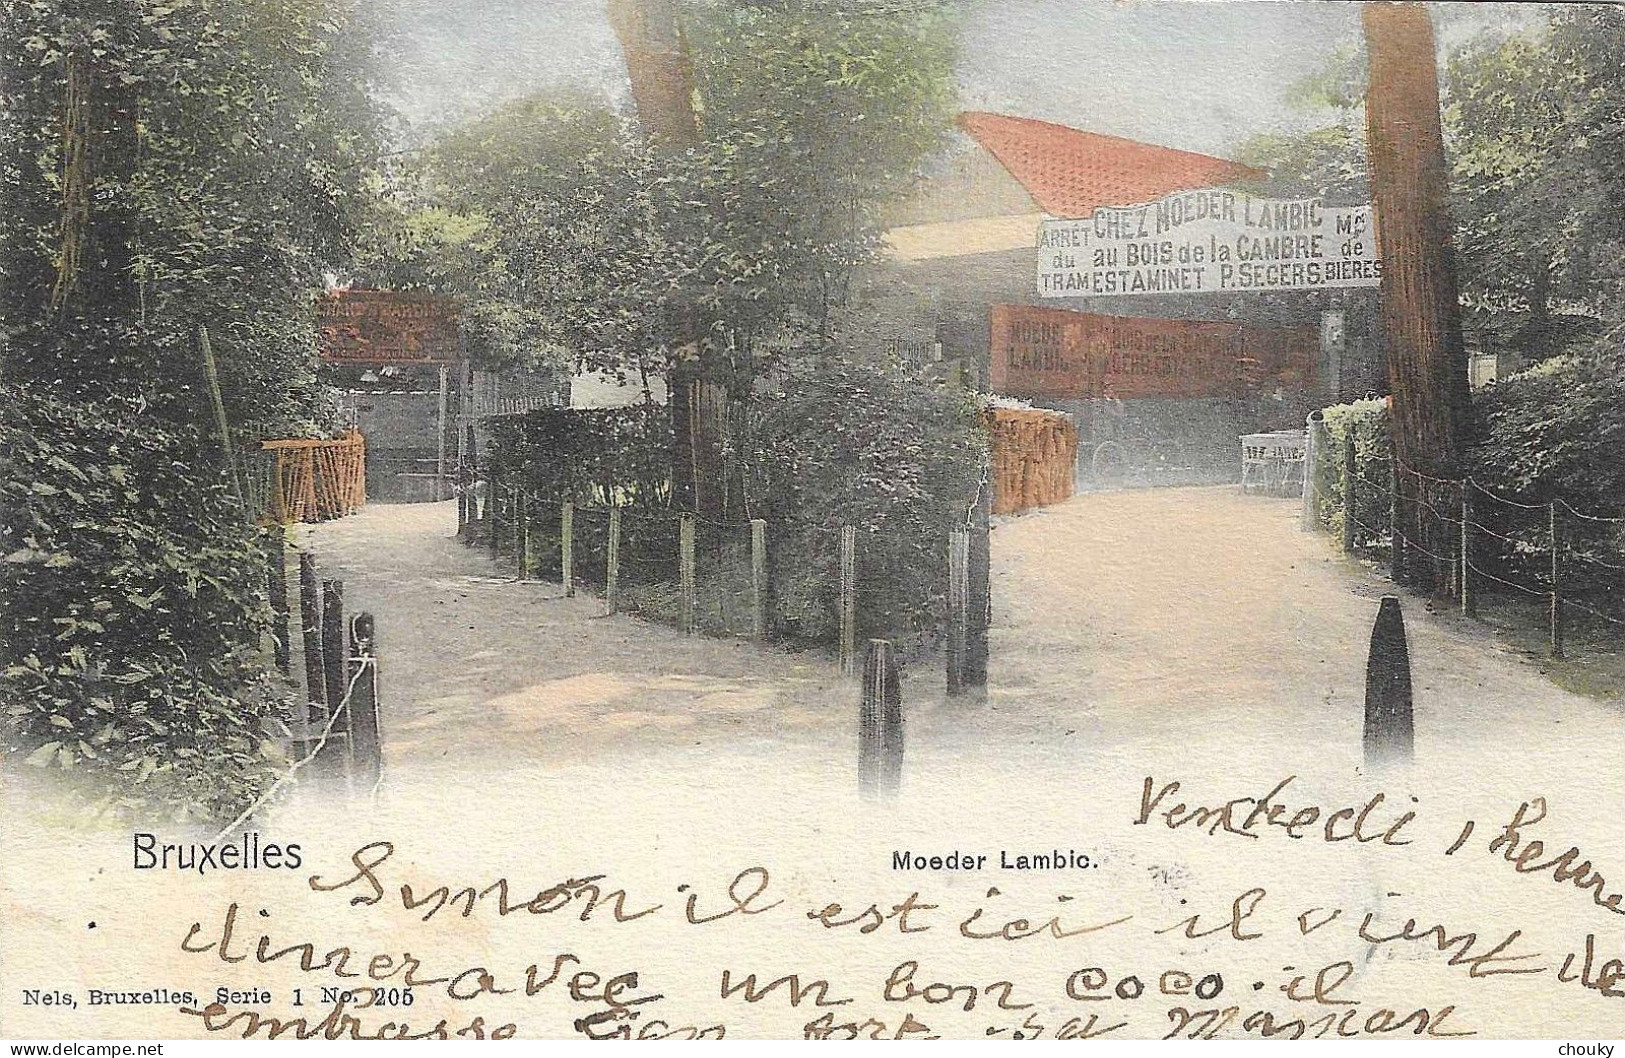 ARRÊT CHEZ MOEDER LAMBIC Mᴰ
du au BOIS de la CAMBRE de
TRAM ESTAMINET P. SEGERS. BIÈRES
MOEDE
LAMBIC
Bruxelles
Moeder Lambic.
Vendredi 1 heure
Symon il est ici il vient de
diner avec un bon coco. il
Nels, Bruxelles, Serie 1 No. 205
embrasse bien fort sa Maman
delcampe.net
chouky